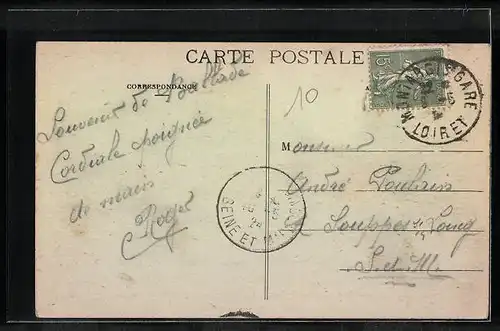 CARTE POSTALE
CORRESPONDANCE
Souvenir de Ballade
Cordiale poignée
de main
Roger
10
5
MONTARGIS-GARE
LOIRET
SEINE ET M
Monsieur
André Poulain
Souppes s/s Loing
S. et M.